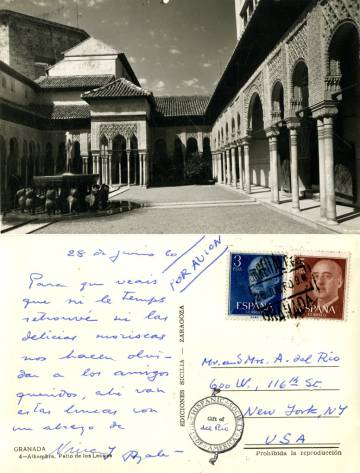 28 de junio 60
POR AVION
Para que veais
que ni le Temps
retrouvé ni las
delicias moriscas
nos hacen olvi-
dan a los amigos
queridos, ahí van
estas lineas con
un abrazo de
Nina y
GRANADA
4 - Alhambra. Patio de los Leones
EDICIONES SICILIA - ZARAGOZA
3
PTAS
ESPAÑA
ESPAÑA
GRANADA
Mr. and Mrs. A. del Rio
600 W., 116th St
New York, N.Y
USA
HISPANIC
Gift of
del Río
Prohibida la reproducción